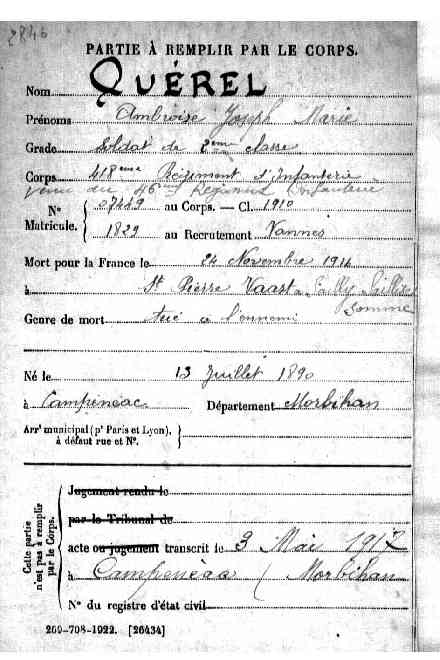 2846
PARTIE À REMPLIR PAR LE CORPS.
Nom QUÉREL
Prénoms Ambroise Joseph Marie
Grade Soldat de 2ème classe
Corps 418eme Régiment d'Infanterie
venu du Régiment Infanterie
N° Matricule. { 07449 au Corps. — Cl. 1910
1829 au Recrutement Vannes
Mort pour la France le 24 Novembre 1914
à St Pierre Vaast Saillisel
Somme
Genre de mort tué à l'ennemi
Né le 13 Juillet 1890
à Campénéac Département Morbihan
Arrt municipal (pr Paris et Lyon), à défaut rue et N°.
Cette partie n'est pas à remplir par le Corps.
Jugement rendu le
par le Tribunal de
acte ou jugement transcrit le 3 Mai 1917
à Campénéac (Morbihan
N° du registre d'état civil
269-708-1922. [26434]